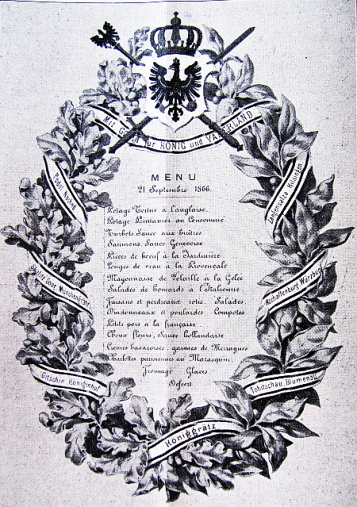 Mit GOTT für KÖNIG und VATERLAND
MENU
21 Septembre 1866.
Potage Tortue à l'anglaise.
Potage Printanier au Consommé
Turbots Sauce aux huîtres
Saumons Sauce Genevoise
Pièces de boeuf à la Jardinière
Longes de veau à la Provençale
Mayonnaise de Volaille à la Gelée
Salades de homards à l'Italienne.
Faisans et perdreaux rotis. Salades
Dindonneaux et poulardes Compotes
Petits pois a la française
Choux fleurs, Sauce hollandaise
Crèmes bavaroises garnies de Meringues
Charlottes parisiennes au Marasquin.
Fromage Glaces
Dessert
Podol Nachod
Skalitz
Münchengrätz
Gitschin Königinhof
Königgrätz
Tobitschau Blumenau
Aschaffenburg Würzburg
Langensalza Kissingen